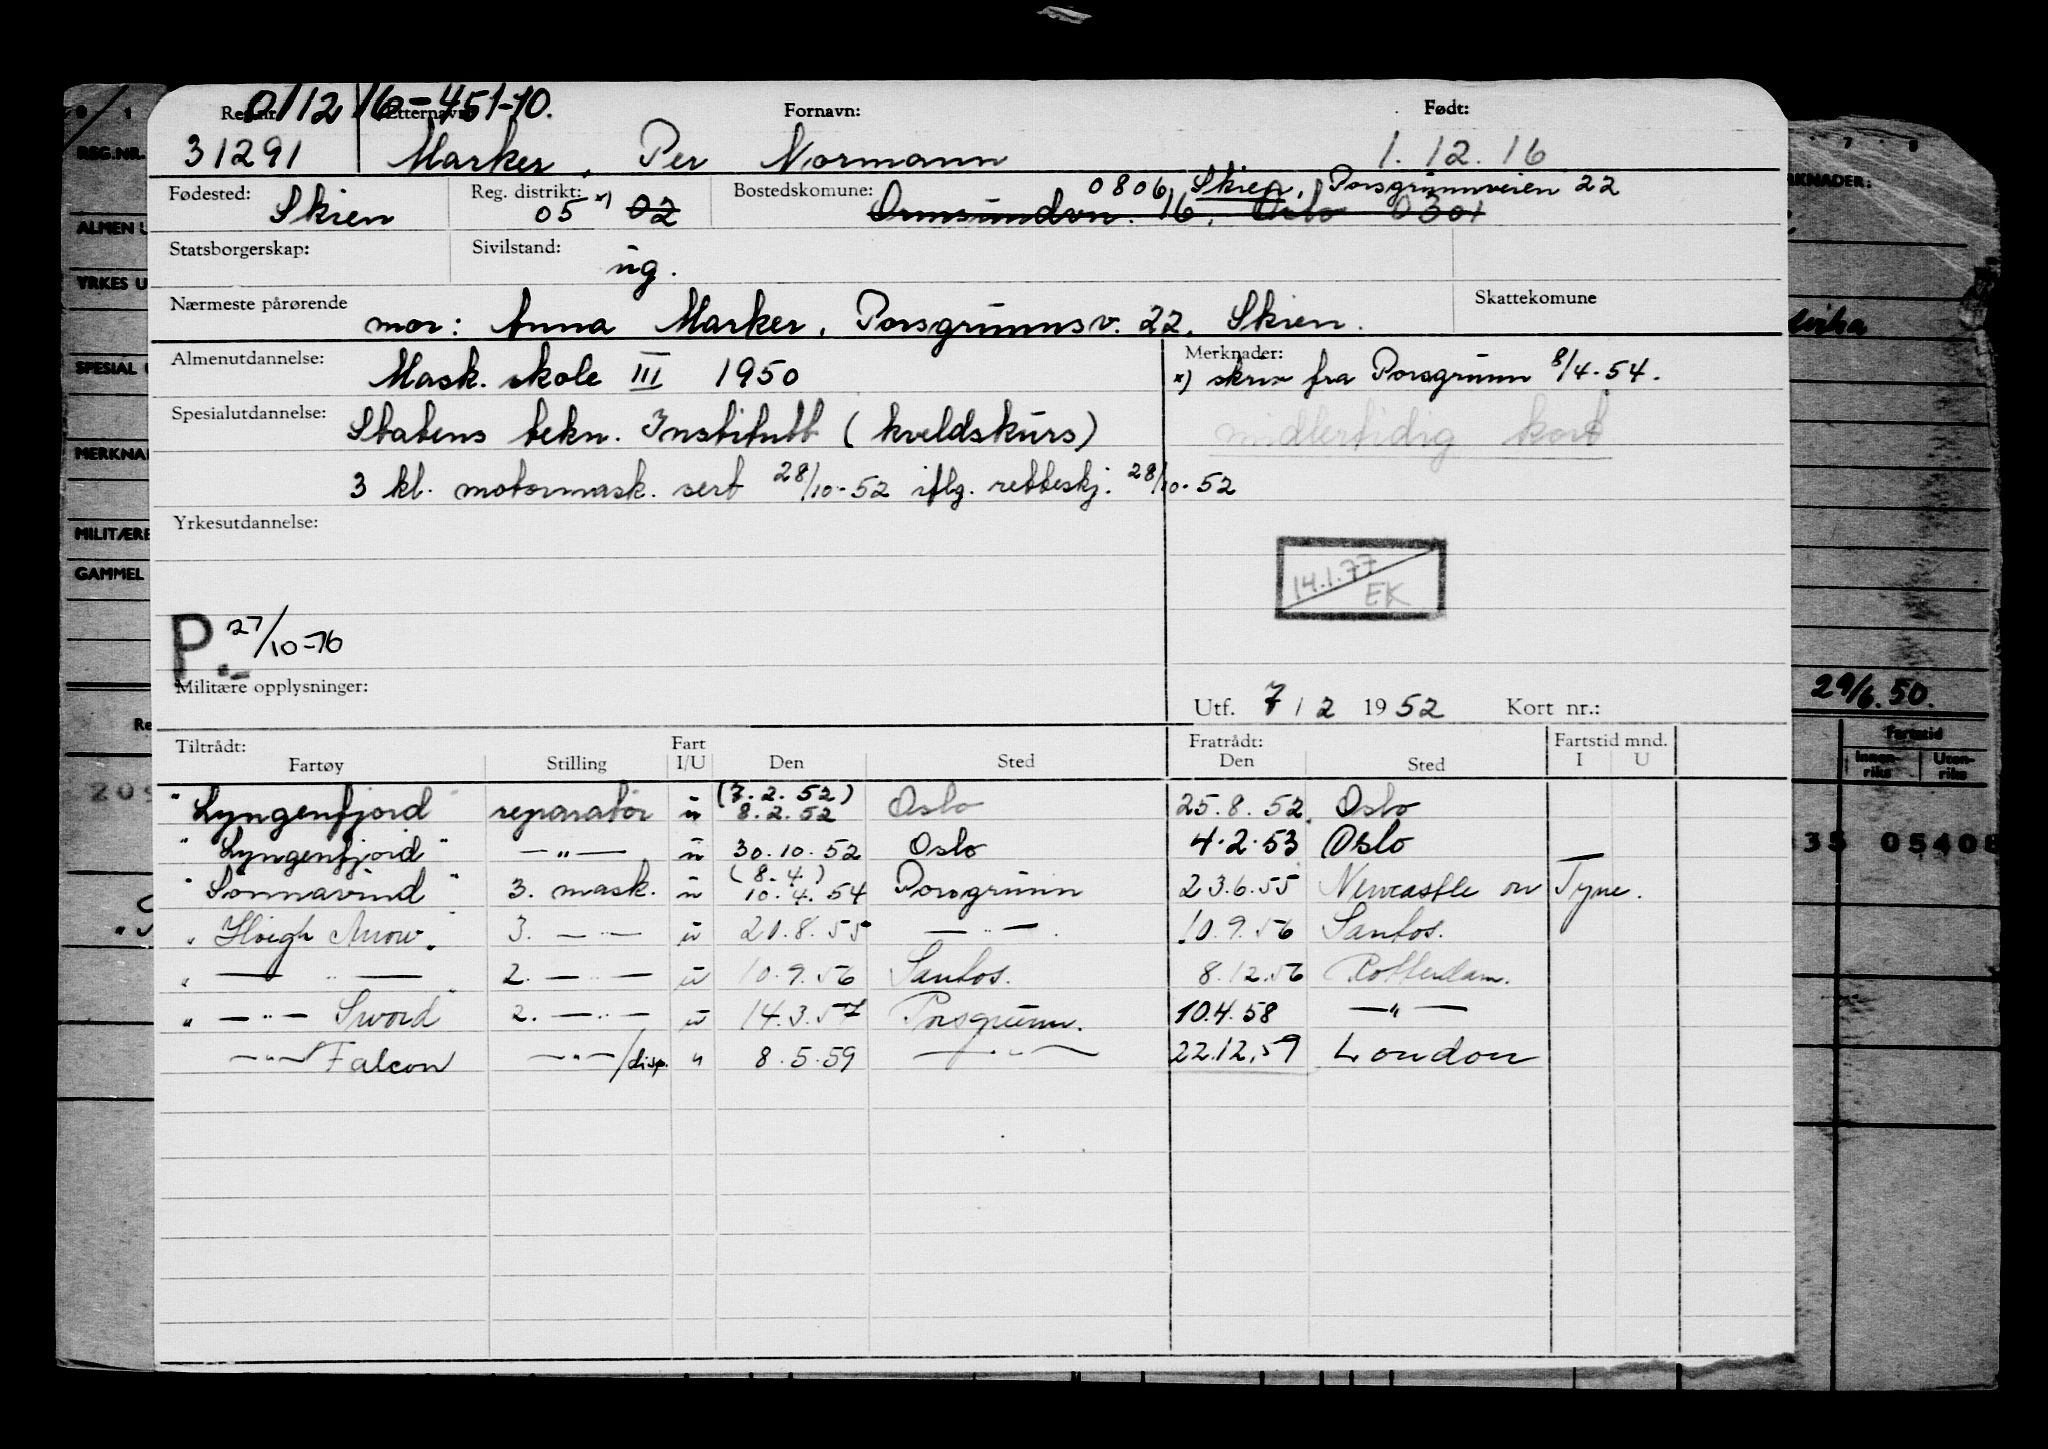 011216-451-10.
Reg. nr. Etternavn: Fornavn: Født:
31291 Marker, Per Normann 1.12.16
Fødested: Skien Reg. distrikt: 05 *) 02 Bostedskomune: 0806 Skien, Porsgrunnveien 22
Ormsundvn. 16, Oslo 0301
Statsborgerskap: Sivilstand: ug.
Nærmeste pårørende mor: Anna Marker, Porsgrunnsv. 22, Skien. Skattekomune
Almenutdannelse: Mask. skole III 1950
Merknader:
*) skriv fra Porsgrunn 8/4-54.
midlertidig kort
Spesialutdannelse: Statens tekn. Institutt (kveldskurs)
3 kl. motormask. sert 28/10-52 iflg. retteskj. 28/10-52
Yrkesutdannelse:
14.1.77
EK
P.- 27/10-76
Militære opplysninger:
Utf. 7/2 1952 Kort nr.:
Tiltrådt: Fratrådt: Fartstid mnd.
Fartøy Stilling Fart I/U Den Sted Den Sted I U
"Lyngenfjord" reparatør u (7.2.52) 8.2.52 Oslo 25.8.52. Oslo
"Lyngenfjord" —"— u 30.10.52 Oslo 4.2.53 Oslo
"Sonnavind" 3. mask. u (8.4) 10.4.54 Porsgrunn 23.6.55 Newcastle on Tyne.
"Høegh Arrow" 3. —"— u 21.8.55 —"—. 10.9.56 Santos.
" — " — 2. —"— u 10.9.56 Santos. 8.12.56 Rotterdam.
" —"— Sword" 2. —"— u 14.3.57 Porsgrunn. 10.4.58 —"—
—"— Falcon —"—/disp. " 8.5.59 —"— 22.12.59 London
REG.NR.
ALMEN U
YRKES U
SPESIAL U
MERKNA
MILITÆRE
GAMMEL
Re
209
RKNADER:
29/6.50.
Fartstid
Innen-riks Uten-riks
335 05408